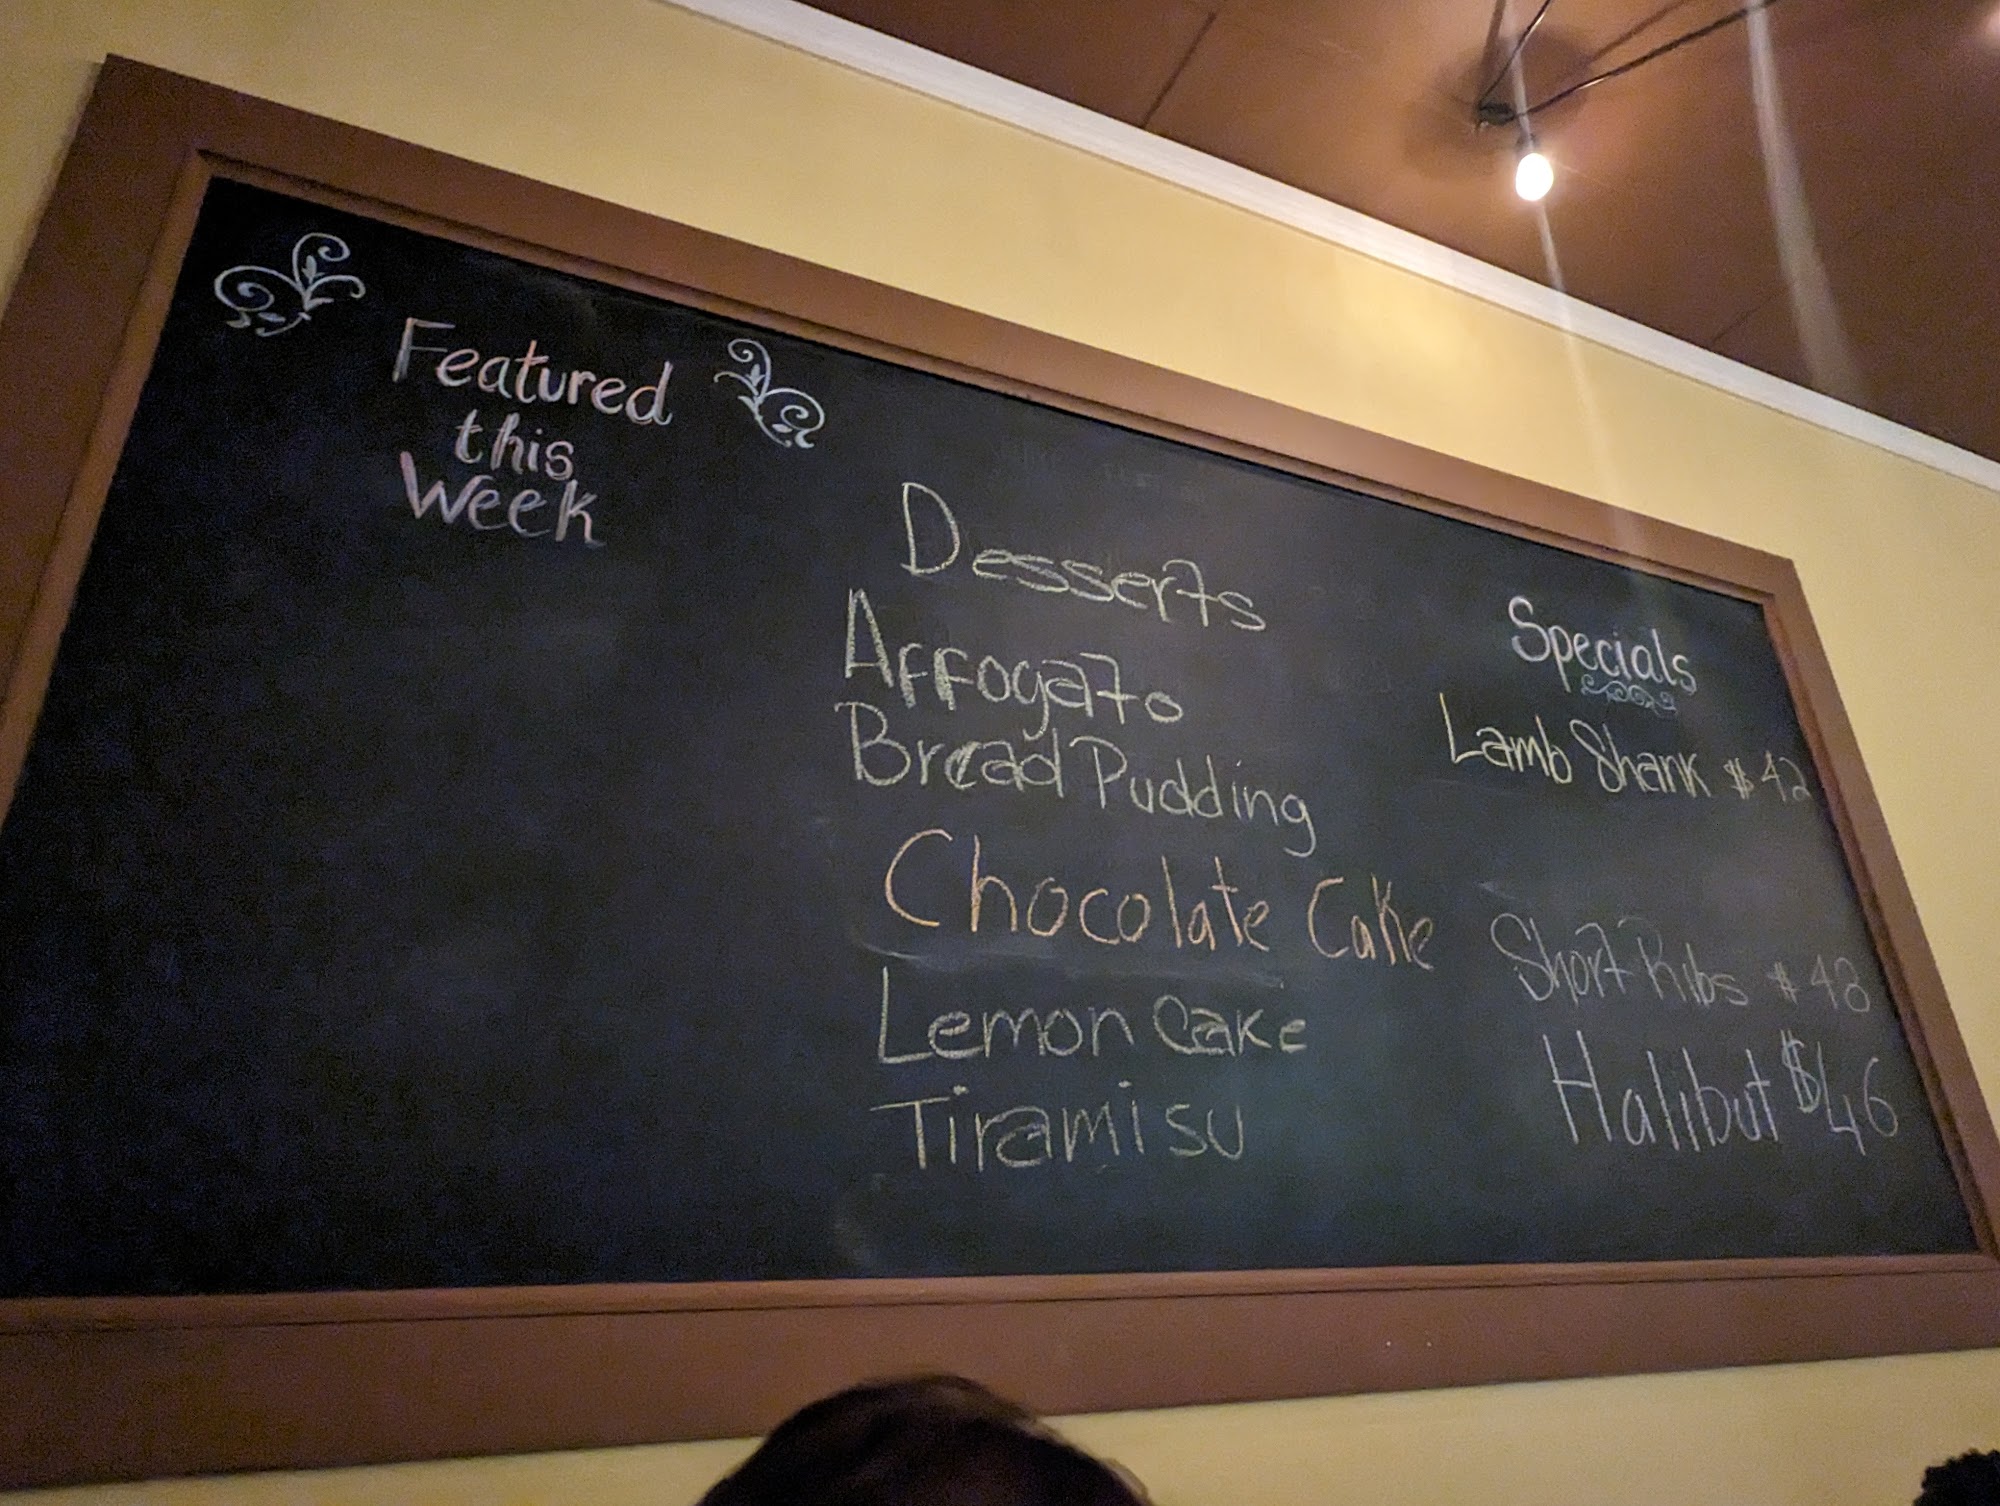 Featured
this
Week
Desserts
Affogato
Bread Pudding
Chocolate Cake
Lemon Cake
Tiramisu
Specials
Lamb Shank $42
Short Ribs $48
Halibut $46